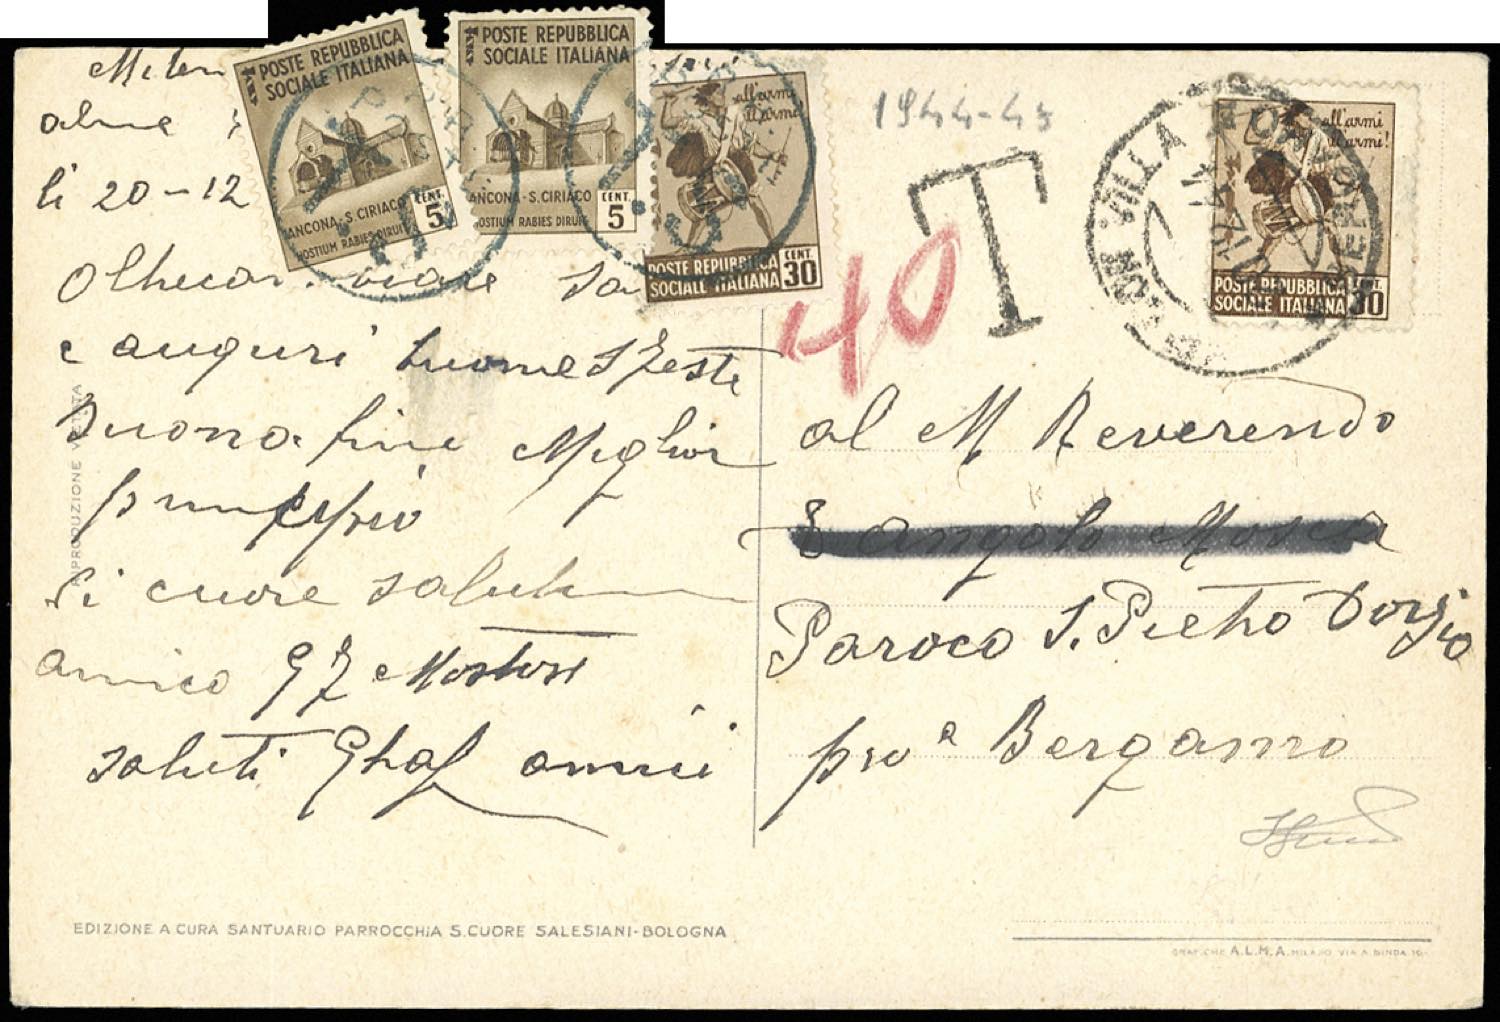 POSTE REPUBBLICA
SOCIALE ITALIANA
ANCONA-S.CIRIACO
HOSTIUM RABIES DIRUIT
CENT.
5
POSTE REPUBBLICA
SOCIALE ITALIANA
ANCONA-S.CIRIACO
HOSTIUM RABIES DIRUIT
CENT.
5
all'armi
all'armi!
POSTE REPUBBLICA
SOCIALE ITALIANA
CENT.
30
1944-45
T
40
VILLA
all'armi
all'armi!
POSTE REPUBBLICA
SOCIALE ITALIANA
CENT.
30
li 20-12
e auguri buone Feste
Buona fine Miglior
principio
di cuore
amico
saluti amici
al M. Reverendo
S angolo Mosca
Paroco S. Pietro Dorzio
prov a Bergamo
RIPRODUZIONE VIETATA
EDIZIONE A CURA SANTUARIO PARROCCHIA S.CUORE SALESIANI-BOLOGNA
GRAFICHE A.L.M.A. MILANO VIA A BINDA 10